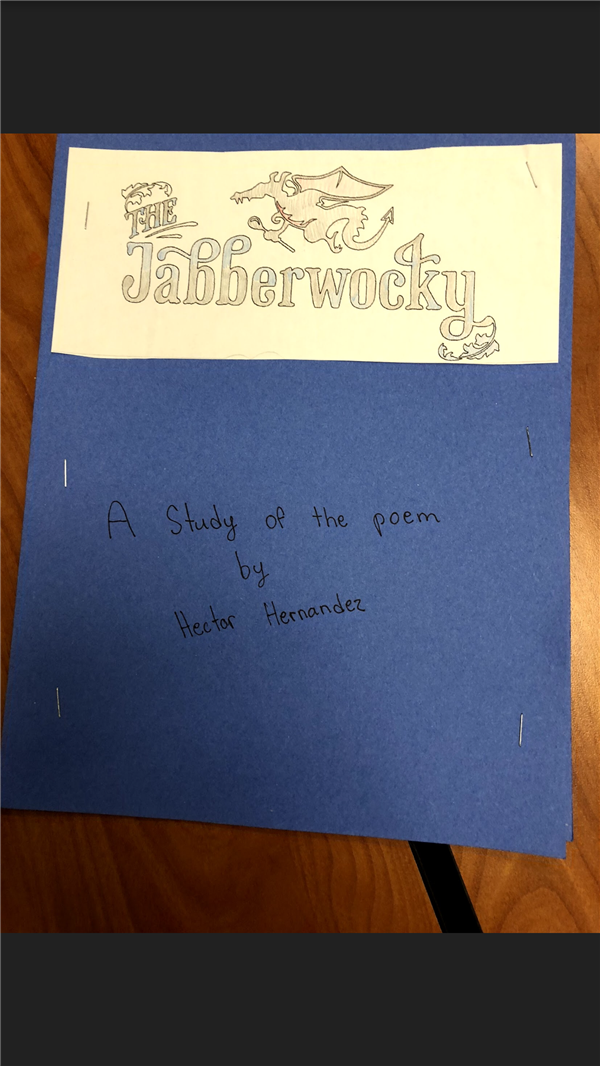 THE
Jabberwocky
A Study of the poem
by
Hector Hernandez